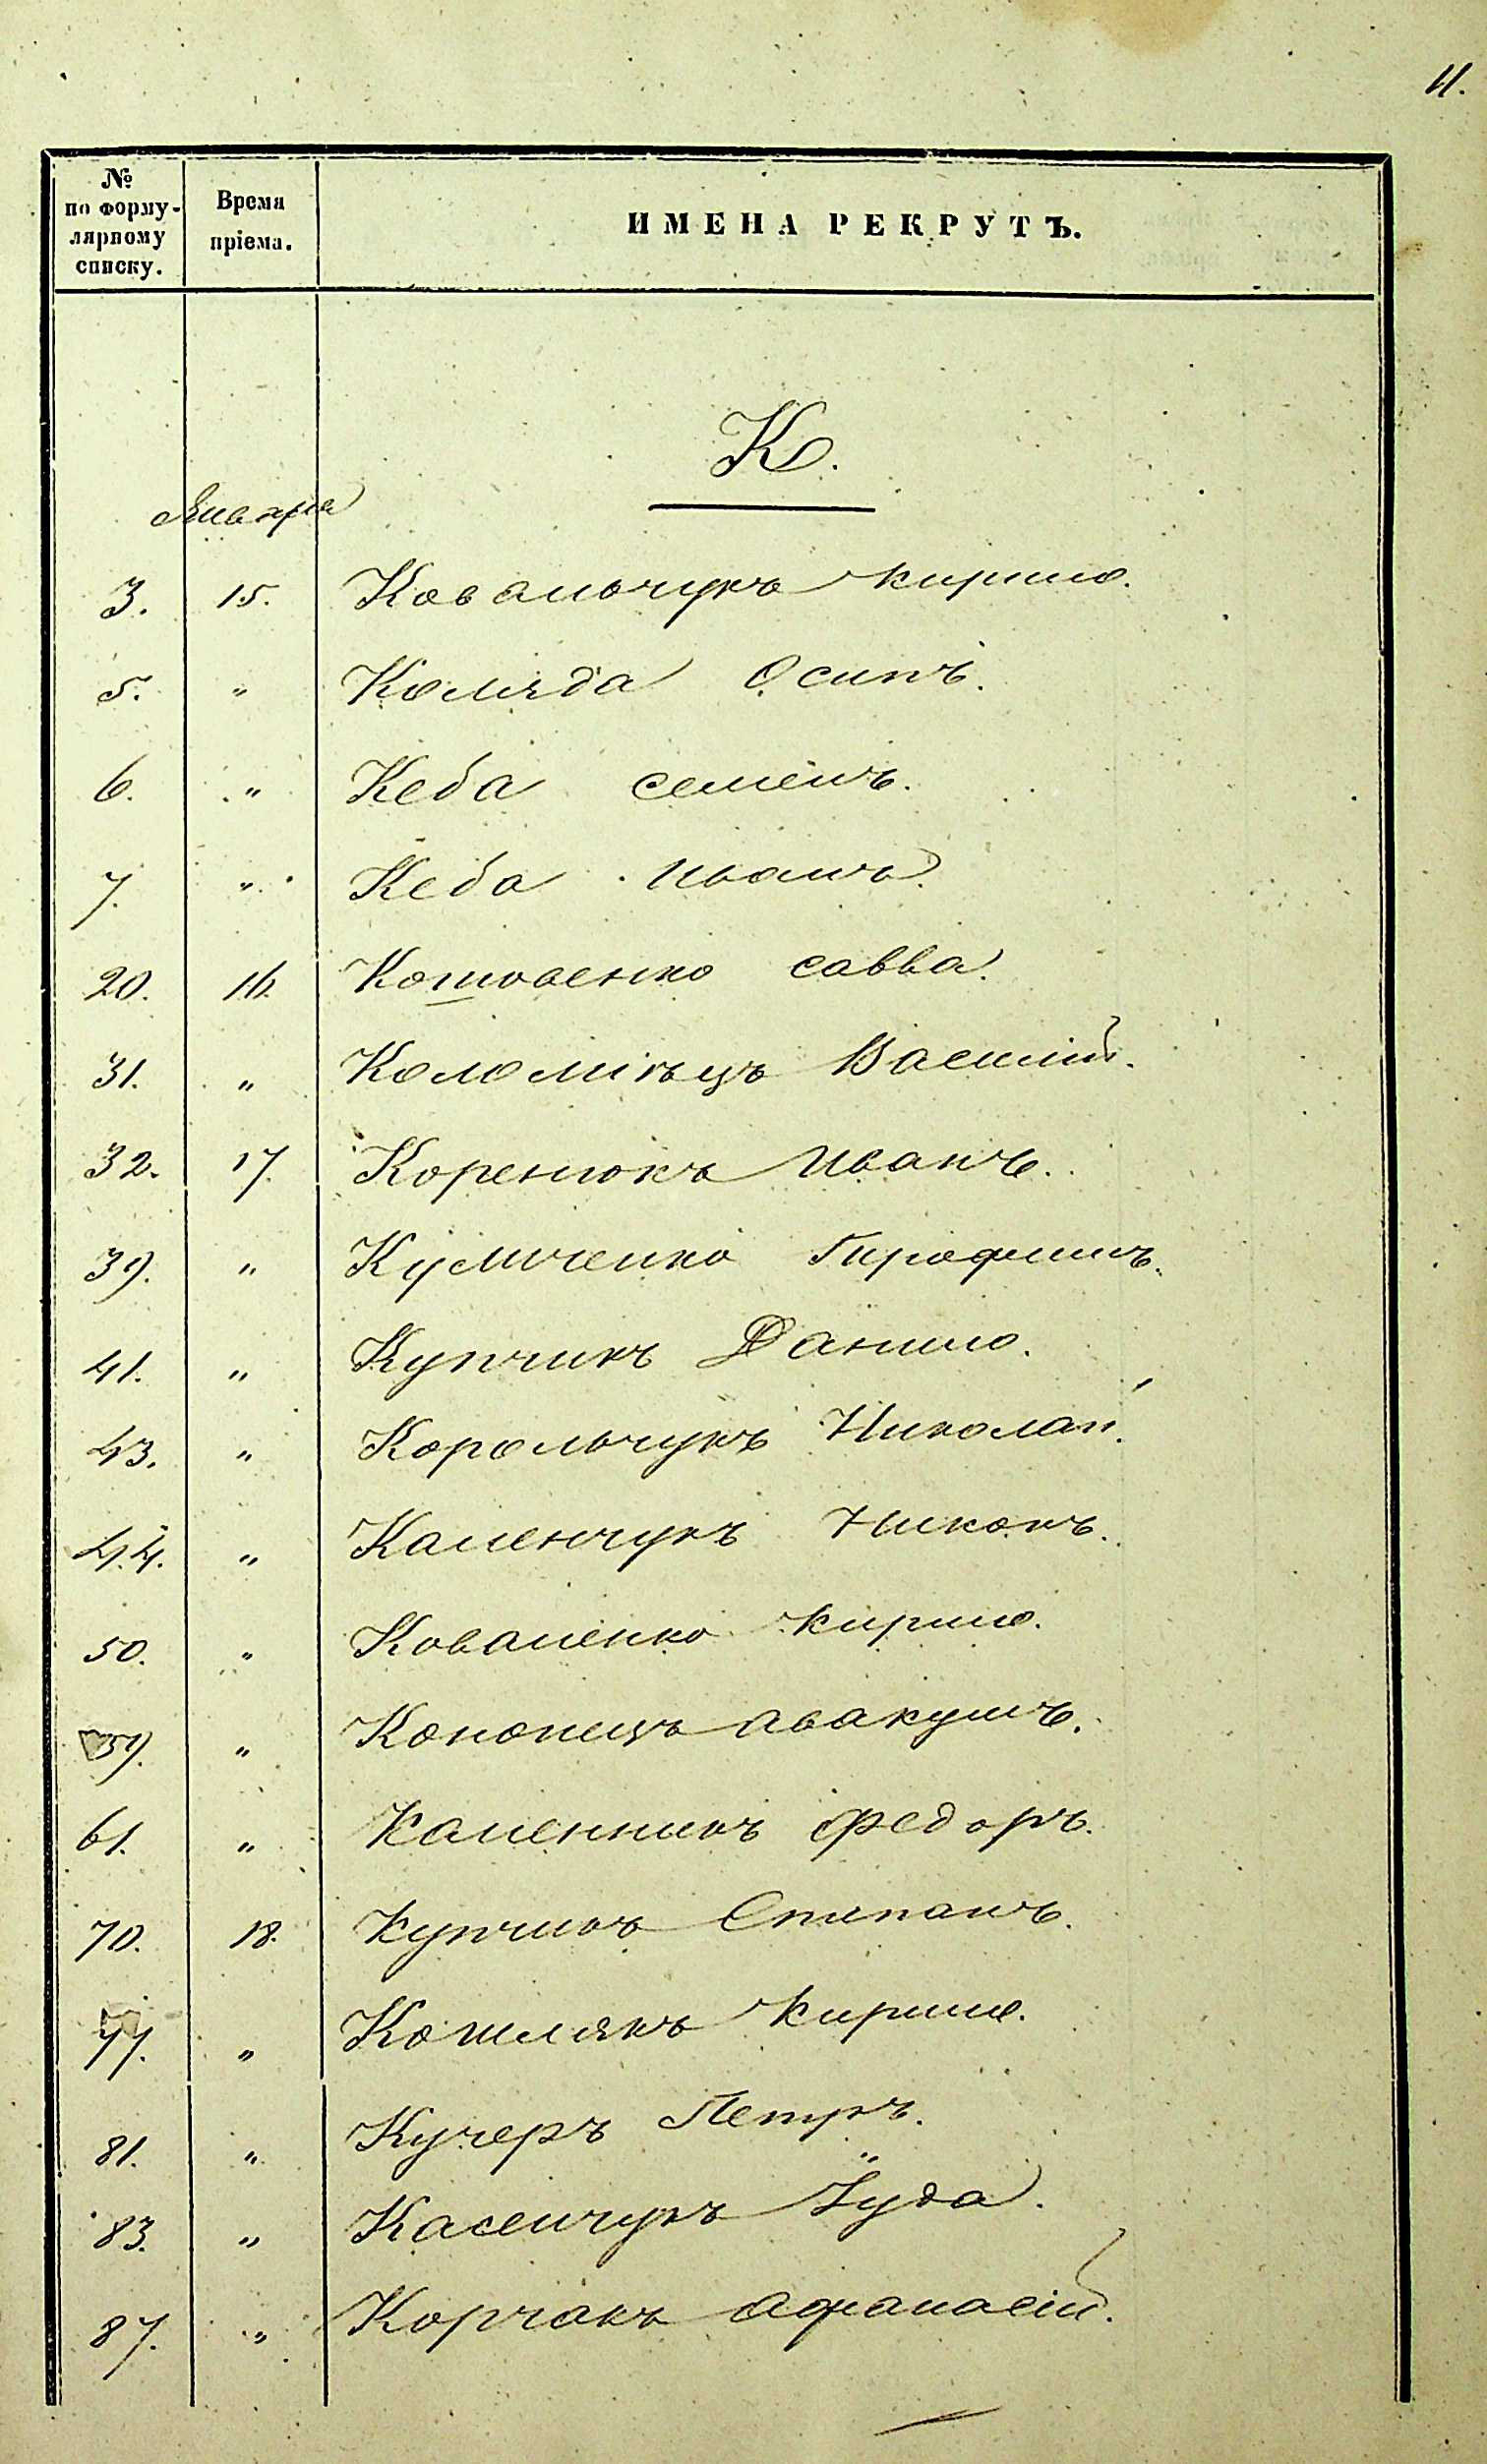 11.
№ по форму-лярному списку. Время пріема. ИМЕНА РЕКРУТЪ.
К.
Января
3. 15. Ковальчукъ Кирило.
5. " Коляда Осипъ.
6. " Кеба Семенъ.
7. " Кеба Иванъ.
20. 16. Котовенко Савва.
31. " Коломіецъ Василій.
32. 17. Коренюкъ Иванъ.
39. "
41. " Купчикъ Данило.
43. " Корольчукъ Николай.
44. " Каленчукъ Никонъ.
50. " Коваленко Кирило.
59. " Кононецъ Авакумъ.
61. " Каленникъ Федоръ.
70. 18. Купчикъ Степанъ.
77. " Кошлякъ Кирило.
81. " Кучеръ Петръ.
83. " Касенчукъ Іуда.
87. " Корчакъ Афанасій.